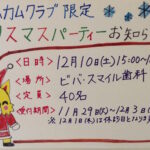 ムカムクラブ 限定
リスマスパーティーお知ら
<日時> 12月10日(土)15:00~1
<場所> ビバ・スマイル歯科
<定員> 40名
<受付期間> 11月29日(火)~12月3日(
※12月1日(木)は休診日となります